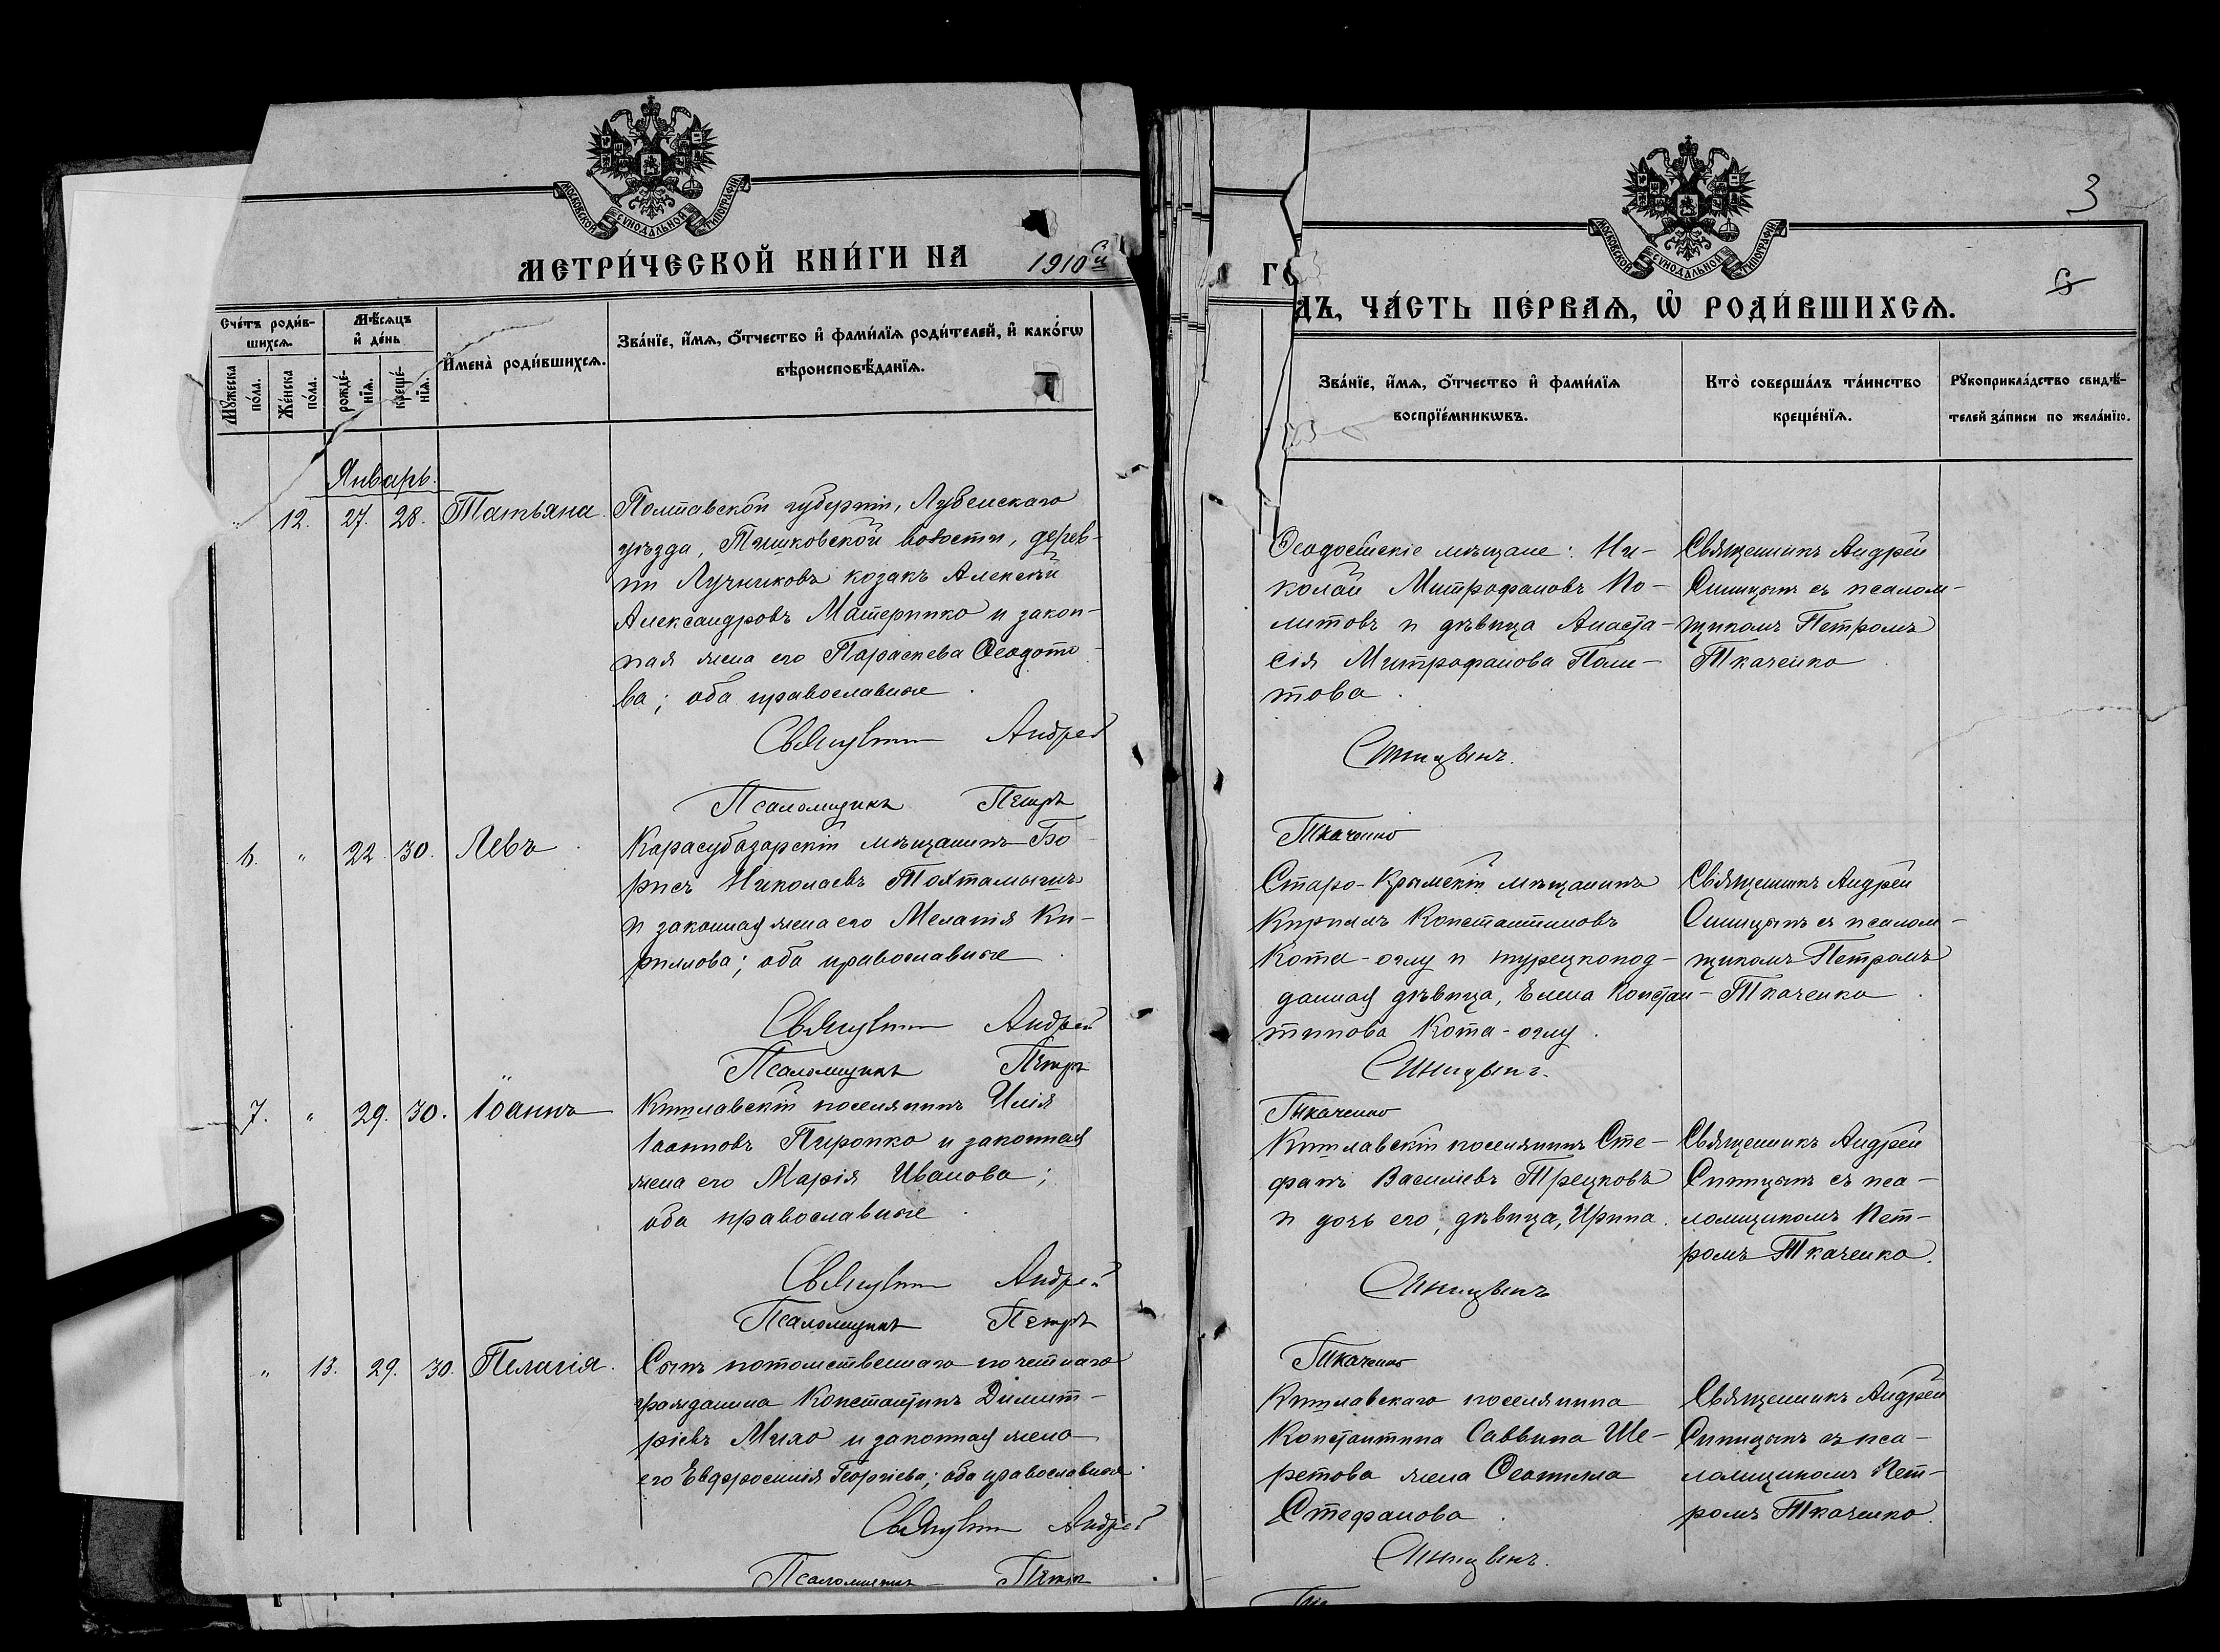 МОСКОВСКОЙ СѴНОДАЛЬНОЙ ТИПОГРАФІИ
МЕТРИ́ЧЕСКОЙ КНИ́ГИ НА 1910й
Сче́тъ роди́в-
шихсѧ.
Мѣ́сѧцъ
и҆ де́нь
Мꙋ́жеска
по́ла.
Же́нска
по́ла.
рожде́-
нїѧ.
креще́-
нїѧ.
И҆мена̀ роди́вшихсѧ.
Зва́нїе, и҆́мѧ, ѻ҆́тчество и҆ фами́лїѧ роди́телей, и҆ како́гѡ
вѣроисповѣ́данїѧ.
Январь.
" 12. 27. 28. Татьяна.
Полтавской губерніи, Лубенскаго
уѣзда, Тишковской волости, дерев-
ни Лучниковъ козакъ Алексѣй
Александровъ Материнко и закон-
ная жена его Параскева Ѳеодото-
ва; оба православные.
Священникъ Андрей
Псаломщикъ Петръ
6. " 22. 30. Левъ.
Карасубазарскій мѣщанинъ Бо-
рисъ Николаевъ Тохтамышъ
и законная жена его Меланія Ки-
риллова; оба православные.
Священникъ Андрей
Псаломщикъ Петръ
7. " 29. 30. Іоаннъ
Кишлавскій поселянинъ Илія
Іоанновъ Пиронко и законная
жена его Марія Иванова;
оба православные.
Священникъ Андрей
Псаломщикъ Петръ
" 13. 29. 30. Пелагія.
Сынъ потомственнаго почетнаго
гражданина Константинъ Димит-
ріевъ Михо и законная жена
его Евфросинія Георгіева; оба православные.
Священникъ Андрей
Псаломщикъ Петръ
3
МОСКОВСКОЙ СѴНОДАЛЬНОЙ ТИПОГРАФІИ
6
ГО
ДЪ, ЧА́СТЬ ПЕ́РВАѦ, Ѽ РОДИ́ВШИХСѦ.
Зва́нїе, и҆́мѧ, ѻ҆́тчество и҆ фами́лїѧ
воспрїе́мникѡвъ.
Кто̀ соверша́лъ та́инство
креще́нїѧ.
Рꙋкоприкла́дство свидѣ́-
телей за́писи по жела́нїю.
Ѳеодосійскіе мѣщане: Ни-
колай Митрофановъ По-
литовъ и дѣвица Анаста-
сія Митрофанова Поли-
това.
Священникъ Андрей
Синицынъ съ псалом-
щикомъ Петромъ
Ткаченко.
Синицынъ.
Ткаченко
Старо-Крымскій мѣщанинъ
Кириллъ Константиновъ
Кота-оглу и турецкопод-
данная дѣвица, Елена Констан-
тинова Кота-оглу.
Священникъ Андрей
Синицынъ съ псалом-
щикомъ Петромъ
Ткаченко.
Синицынъ.
Ткаченко
Кишлавскій поселянинъ Сте-
фанъ Василіевъ Трецковъ
и дочь его, дѣвица, Ирина.
Священникъ Андрей
Синицынъ съ пса-
ломщикомъ Пет-
ромъ Ткаченко.
Синицынъ
Ткаченко
Кишлавскаго поселянина
Константина Саввина Ше-
ретова жена
Стефанова.
Священникъ Андрей
Синицынъ съ пса-
ломщикомъ Пет-
ромъ Ткаченко.
Синицынъ.